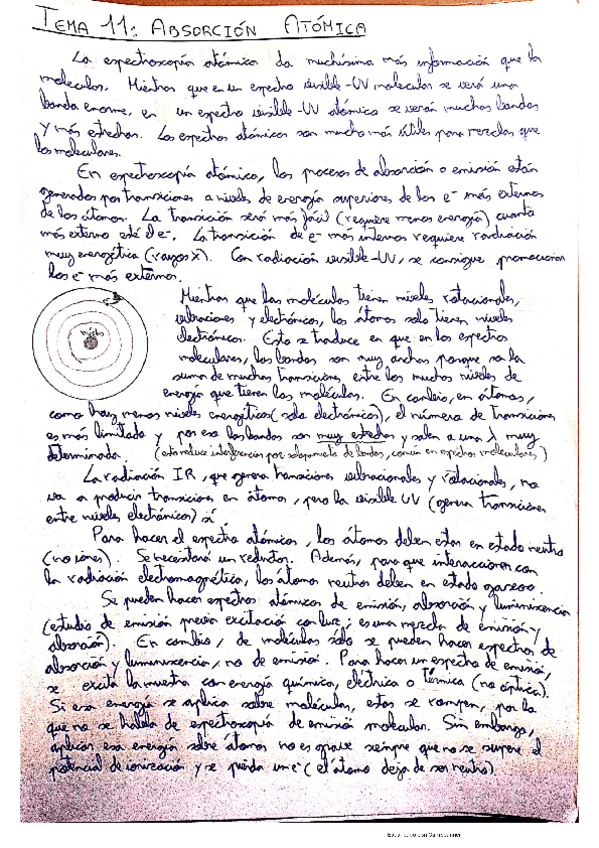 TEMA 11: ABSORCIÓN ATÓMICA
La espectroscopía atómica da muchísima más información que la
molecular. Mientras que en un espectro visible-UV molecular se verá una
banda enorme, en un espectro visible-UV atómico se verán muchas bandas
y más estrechas. Los espectros atómicos son mucho más útiles para mezclas que
los moleculares.
En espectroscopía atómica, los procesos de absorción o emisión están
generados por transiciones a niveles de energía superiores de los e⁻ más externos
de los átomos. La transición será más fácil (requiere menos energía) cuanto
más externo esté el e⁻. La transición de e⁻ más internos requiere radiación
muy energética (rayos X). Con radiación visible-UV, se consigue promocionar
los e⁻ más externos.
Mientras que las moléculas tienen niveles rotacionales,
vibraciones y electrónicos, los átomos solo tienen niveles
electrónicos. Esto se traduce en que en los espectros
moleculares, las bandas son muy anchas porque son la
suma de muchas transiciones entre los muchos niveles de
energía que tienen las moléculas. En cambio, en átomos,
como hay menos niveles energéticos (solo electrónicos), el número de transiciones
es más limitado y por eso las bandas son muy estrechas y salen a una λ muy
determinada. (esto reduce interferencias por solapamiento de bandas, común en espectros moleculares)
La radiación IR, que genera transiciones vibracionales y rotacionales, no
va a producir transiciones en átomos, pero la visible UV (genera transiciones
entre niveles electrónicos) sí
Para hacer el espectro atómicos, los átomos deben estar en estado neutro
(no iones). Se necesitará un reductor. Además, para que interaccionen con
la radiación electromagnética, los átomos neutros deben en estado gaseoso.
Se pueden hacer espectros atómicos de emisión, absorción y luminiscencia
(estudio de emisión previa excitación con luz; es una mezcla de emisión y
absorción). En cambio, de moléculas sólo se pueden hacer espectros de
absorción y luminiscencia, no de emisión. Para hacer un espectro de emisión,
se excita la muestra con energía química, eléctrica o térmica (no óptica).
Si esa energía se aplica sobre moléculas, estas se rompen, por lo
que no se habla de espectroscopía de emisión molecular. Sin embargo,
aplicar esa energía sobre átomos no es grave siempre que no se supere el
potencial de ionización y se pierda un e⁻ (el átomo deja de ser neutro).